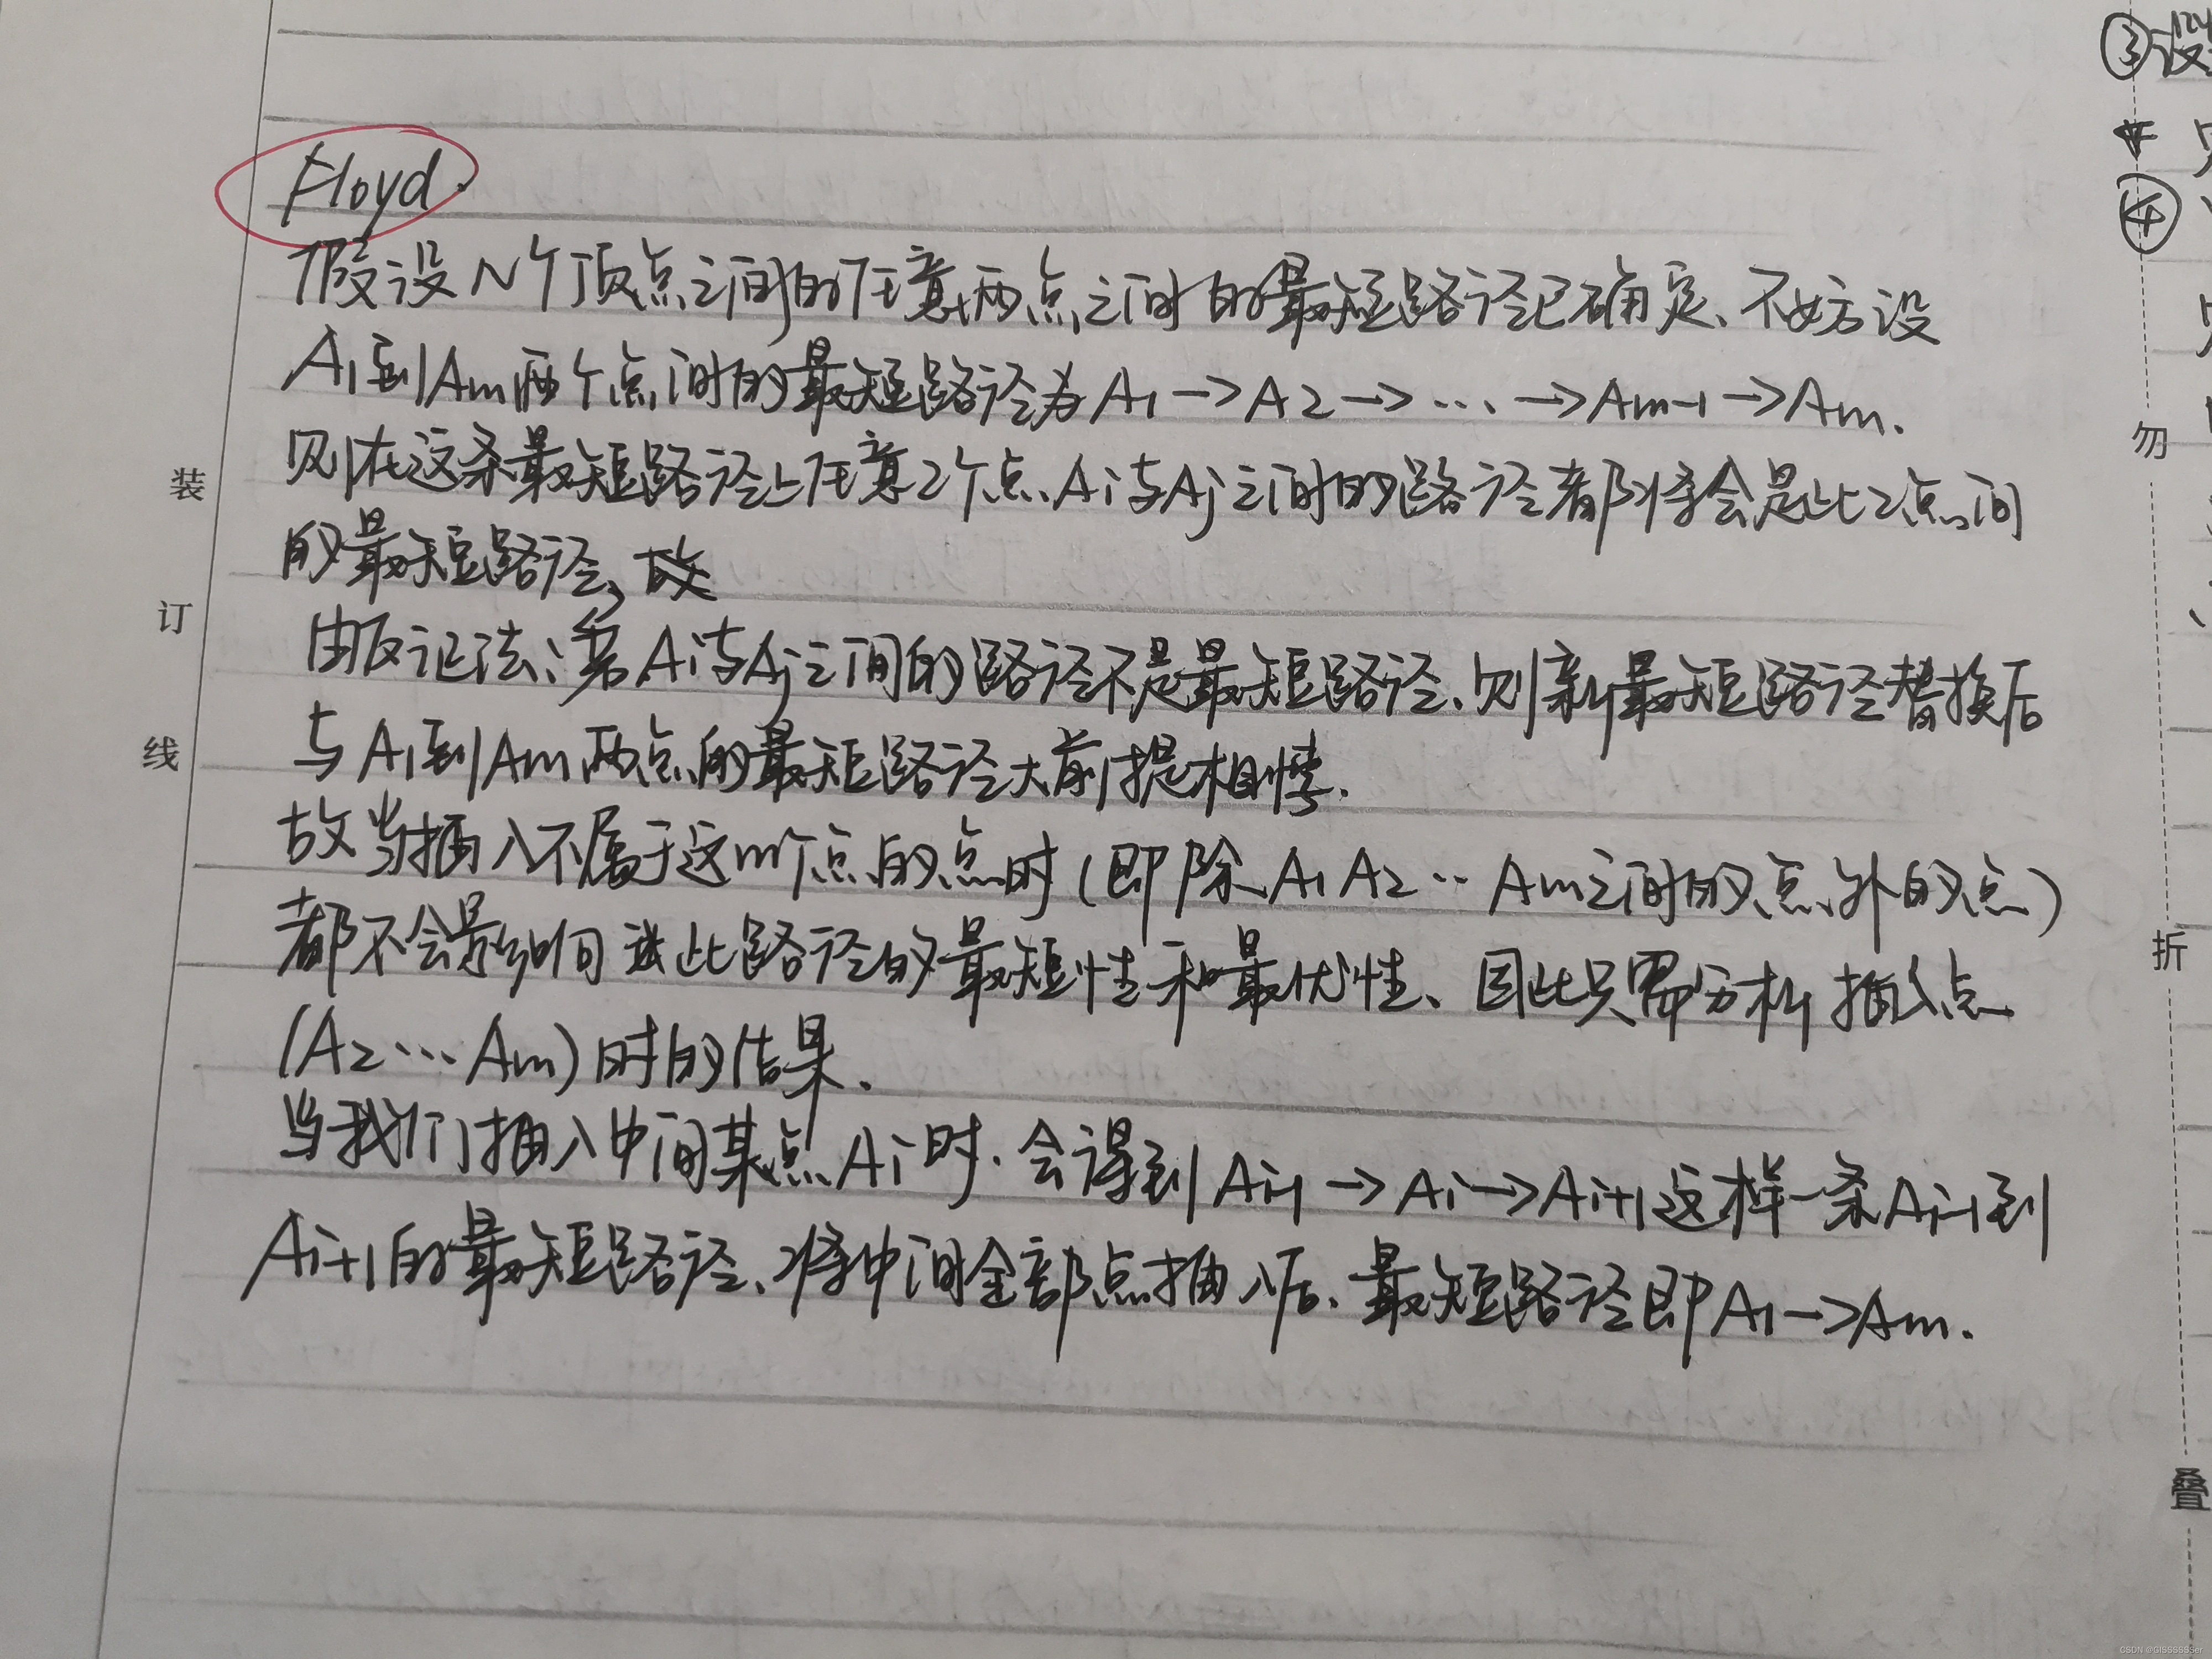 Floyd.
假设N个顶点之间的任意两点之间的最短路径已确定、不妨设
A1到Am两个点间的最短路径为A1→A2→…→Am-1→Am.
则在这条最短路径上任意2个点、Ai与Aj之间的路径都将会是此2点间
的最短路径、故
由反证法：若Ai与Aj之间的路径不是最短路径、则新最短路径替换后
与A1到Am两点的最短路径大前提相悖.
故当插入不属于这m个点的点时(即除A1 A2… Am之间的点外的点)
都不会影响 此路径的最短性和最优性、因此只需分析插入点
(A2…Am)时的结果.
当我们插入中间某点Ai时.会得到Ai-1→Ai→Ai+1这样一条Ai-1到
Ai+1的最短路径、将中间全部点插入后、最短路径即A1→Am.
装
订
线
③设
④
勿
折
叠
CSDN @GISSSSSSer